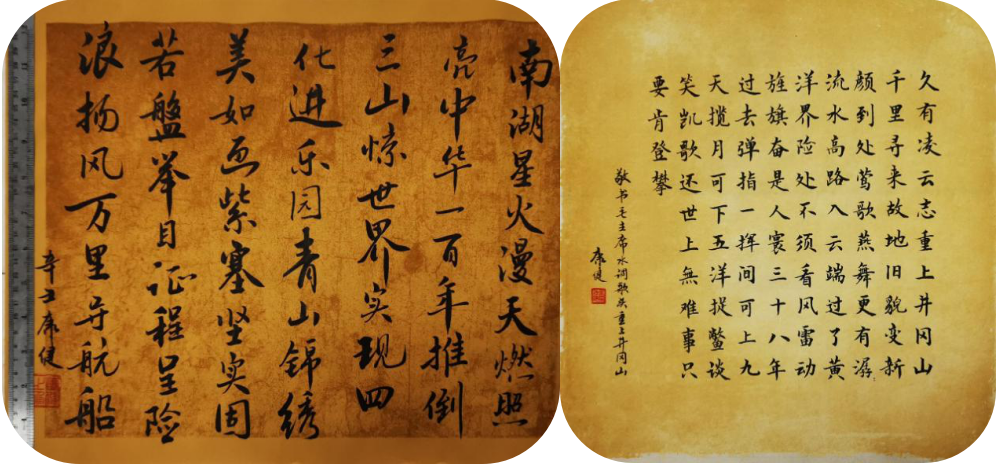 南湖星火漫天燃照
亮中华一百年推倒
三山惊世界实现四
化进乐园青山锦绣
美如画紫塞坚实固
若盤举目证程呈险
浪扬风万里导航船
辛丑康健
久有凌云志重上井冈山
千里寻来故地旧貌变新
颜到处莺歌燕舞更有潺
流水高路入云端过了黄
洋界险处不须看风雷动
旌旗奋是人寰三十八年
过去弹指一挥间可上九
天揽月可下五洋捉鳖谈
笑凯歌还世上無难事只
要肯登攀
敬书毛主席水调歌头重上井冈山
康健